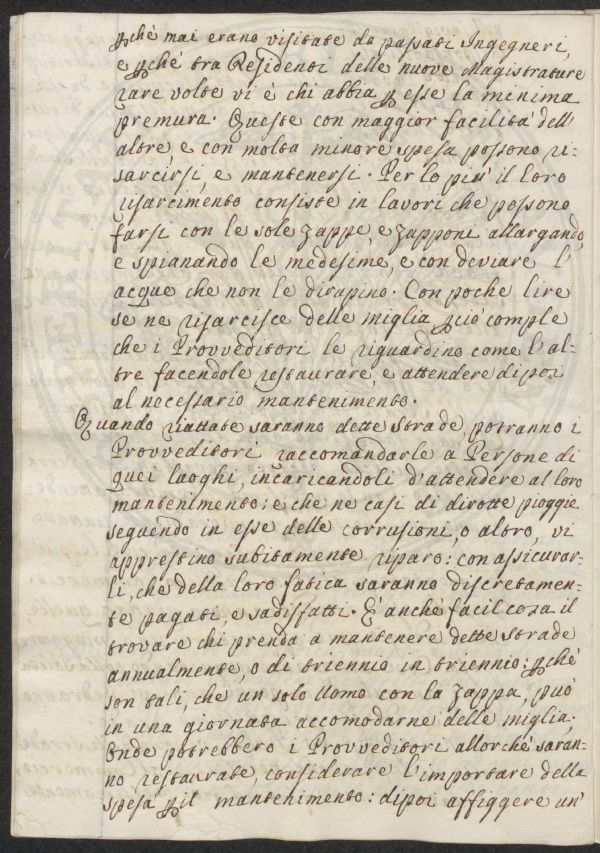 ꝑchè mai erano visitate da passati Ingegneri,
e ꝑchè tra Residenti delle nuove Magistrature
rare volte vi è chi abbia ꝑ esse la minima
premura. Queste con maggior facilità dell'
altre e con molta minore spesa possono ri-
sarcirsi, e mantenersi. Per lo più il loro
risarcimento consiste in lavori che possono
farsi con le sole zappe, e zapponi allargando,
e spianando le medesime, e con deviare l'
acque che non le dirupino. Con poche lire
se ne risarcisce delle miglia ꝑciò comple
che i Provveditori le riguardino come l'al-
tre facendole restaurare, e attendere dipoi
al necessario mantenimento.
Quando riattate saranno dette strade potranno i
Provveditori raccomandarle a Persone di
quei luoghi, incaricandoli d'attendere al loro
mantenimento: e che ne casi di dirotte pioggie
seguendo in esse delle corrusioni, o altro, vi
apprestino subitamente riparo: con assicurar-
li, che della loro fatica saranno discretamen-
te pagati, e sadisfatti. E' anche facil cosa il
trovare chi prenda a mantenere dette strade
annualmente, o di triennio in triennio: ꝑchè
son tali, che un solo Uomo con la zappa, può
in una giornata accomodarne delle miglia.
Onde potrebbero i Provveditori allorchè saran-
no restaurate, considerare l'importare della
spesa ꝑ il mantenimento: dipoi affiggere un'